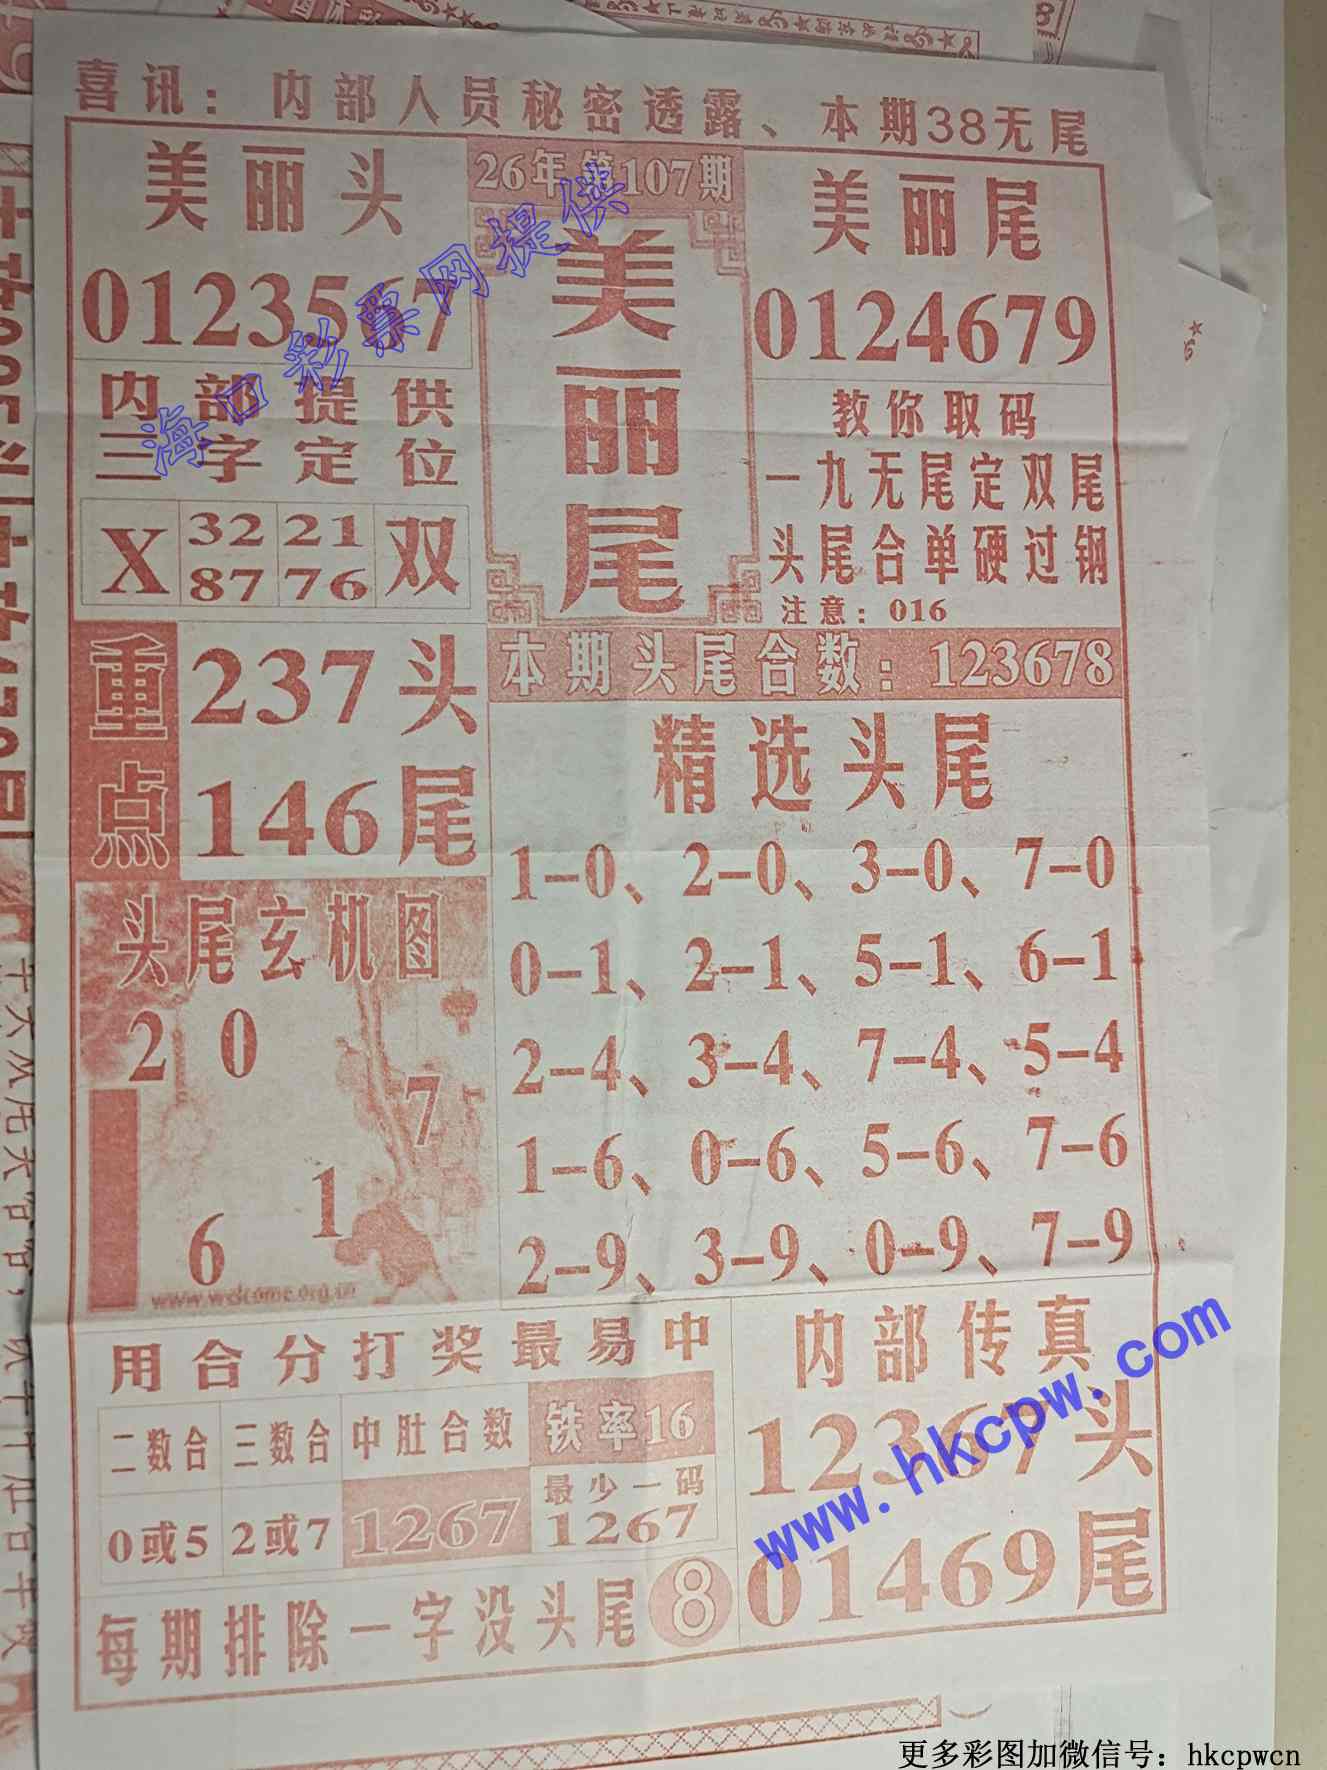 喜讯：内部人员秘密透露、本期38无尾
美丽头
0123567
内部提供
三字定位
X 32 21 双
87 76
26年第107期
美丽尾
美丽尾
0124679
教你取码
一九无尾定双尾
头尾合单硬过钢
注意：016
重点
237头
146尾
本期头尾合数：123678
精选头尾
1-0、2-0、3-0、7-0
0-1、2-1、5-1、6-1
2-4、3-4、7-4、5-4
1-6、0-6、5-6、7-6
2-9、3-9、0-9、7-9
头尾玄机图
2 0
7
1
6
www.welcome.org.cn
用合分打奖最易中
二数合 三数合 中肚合数 铁率16
0或5 2或7 1267 最少一码
1267
每期排除一字没头尾⑧
内部传真
12367头
01469尾
海口彩票网提供
www.hkcpw.com
更多彩图加微信号：hkcpwcn